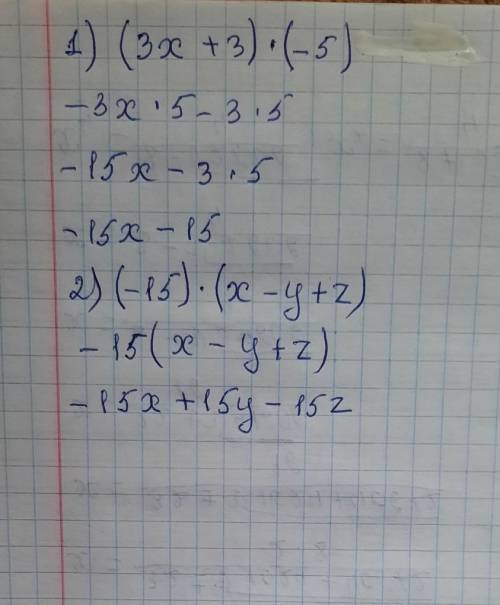 1) (3x + 3) · (-5)
-3x · 5 - 3 · 5
-15x - 3 · 5
-15x - 15
2) (-15) · (x - y + z)
-15(x - y + z)
-15x + 15y - 15z